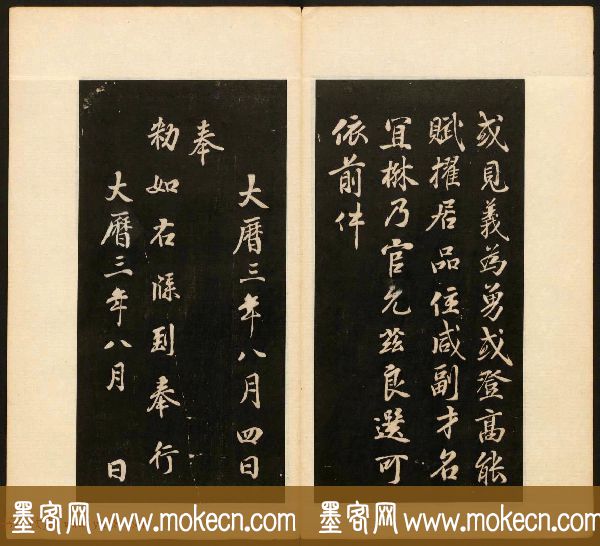 或見義為勇或登高能
賦擢居品位咸副才名
宜楙乃官允茲良選可
依前件
大曆三年八月四日
奉
勑如右牒到奉行
大曆三年八月 日
墨客网 www.mokecn.com 墨客网 www.mokecn.com